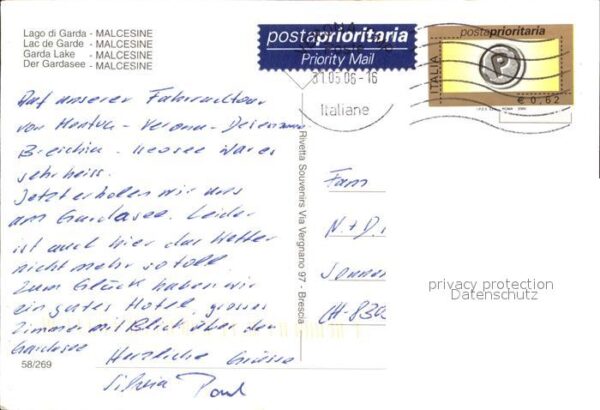 Lago di Garda - MALCESINE
Lac de Garde - MALCESINE
Garda Lake - MALCESINE
Der Gardasee - MALCESINE
postaprioritaria
Priority Mail
31.05.06-16
Italiane
postaprioritaria
ITALIA
P
€ 0,62
Auf unserer Fahrradtour
von Mantua - Verona - Desenzano
Iseosee war es
sehr heiss.
Jetzt erholen wir uns
am Gardasee. Leider
ist auch hier das Wetter
nicht mehr so toll.
Zum Glück haben wir
ein gutes Hotel, grosses
Zimmer mit Blick über den
Gardasee
Herzliche Grüsse
Silvia Paul
58/269
Rivetta Souvenirs Via Vergnano 97 - Brescia
Fam
N + D.
Sonnen
CH-830
privacy protection
Datenschutz